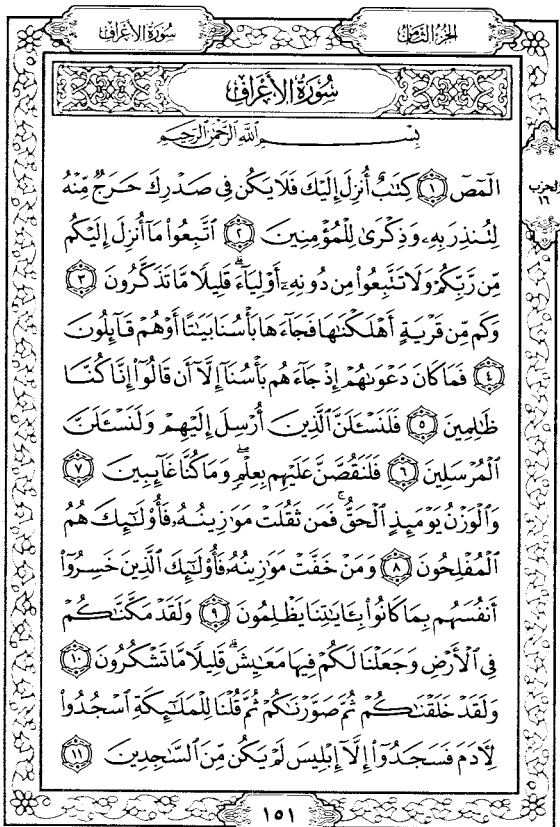 سُورَةُ الأَعْرَافِ
الجُزْءُ الثَّامِنُ
سُورَةُ الأَعْرَافِ
بِسْمِ ٱللَّهِ ٱلرَّحْمَٰنِ ٱلرَّحِيمِ
الحزب
١٦
الٓمٓصٓ ١ كِتَٰبٌ أُنزِلَ إِلَيْكَ فَلَا يَكُن فِى صَدْرِكَ حَرَجٌ مِّنْهُ
لِتُنذِرَ بِهِۦ وَذِكْرَىٰ لِلْمُؤْمِنِينَ ٢ ٱتَّبِعُوا۟ مَآ أُنزِلَ إِلَيْكُم
مِّن رَّبِّكُمْ وَلَا تَتَّبِعُوا۟ مِن دُونِهِۦٓ أَوْلِيَآءَ ۗ قَلِيلًا مَّا تَذَكَّرُونَ ٣
وَكَم مِّن قَرْيَةٍ أَهْلَكْنَٰهَا فَجَآءَهَا بَأْسُنَا بَيَٰتًا أَوْ هُمْ قَآئِلُونَ
٤ فَمَا كَانَ دَعْوَىٰهُمْ إِذْ جَآءَهُم بَأْسُنَآ إِلَّآ أَن قَالُوٓا۟ إِنَّا كُنَّا
ظَٰلِمِينَ ٥ فَلَنَسْـَٔلَنَّ ٱلَّذِينَ أُرْسِلَ إِلَيْهِمْ وَلَنَسْـَٔلَنَّ
ٱلْمُرْسَلِينَ ٦ فَلَنَقُصَّنَّ عَلَيْهِم بِعِلْمٍ ۖ وَمَا كُنَّا غَآئِبِينَ ٧
وَٱلْوَزْنُ يَوْمَئِذٍ ٱلْحَقُّ ۚ فَمَن ثَقُلَتْ مَوَٰزِينُهُۥ فَأُو۟لَٰٓئِكَ هُمُ
ٱلْمُفْلِحُونَ ٨ وَمَنْ خَفَّتْ مَوَٰزِينُهُۥ فَأُو۟لَٰٓئِكَ ٱلَّذِينَ خَسِرُوٓا۟
أَنفُسَهُم بِمَا كَانُوا۟ بِـَٔايَٰتِنَا يَظْلِمُونَ ٩ وَلَقَدْ مَكَّنَّٰكُمْ
فِى ٱلْأَرْضِ وَجَعَلْنَا لَكُمْ فِيهَا مَعَٰيِشَ ۗ قَلِيلًا مَّا تَشْكُرُونَ ١٠
وَلَقَدْ خَلَقْنَٰكُمْ ثُمَّ صَوَّرْنَٰكُمْ ثُمَّ قُلْنَا لِلْمَلَٰٓئِكَةِ ٱسْجُدُوا۟
لِـَٔادَمَ فَسَجَدُوٓا۟ إِلَّآ إِبْلِيسَ لَمْ يَكُن مِّنَ ٱلسَّٰجِدِينَ ١١
١٥١